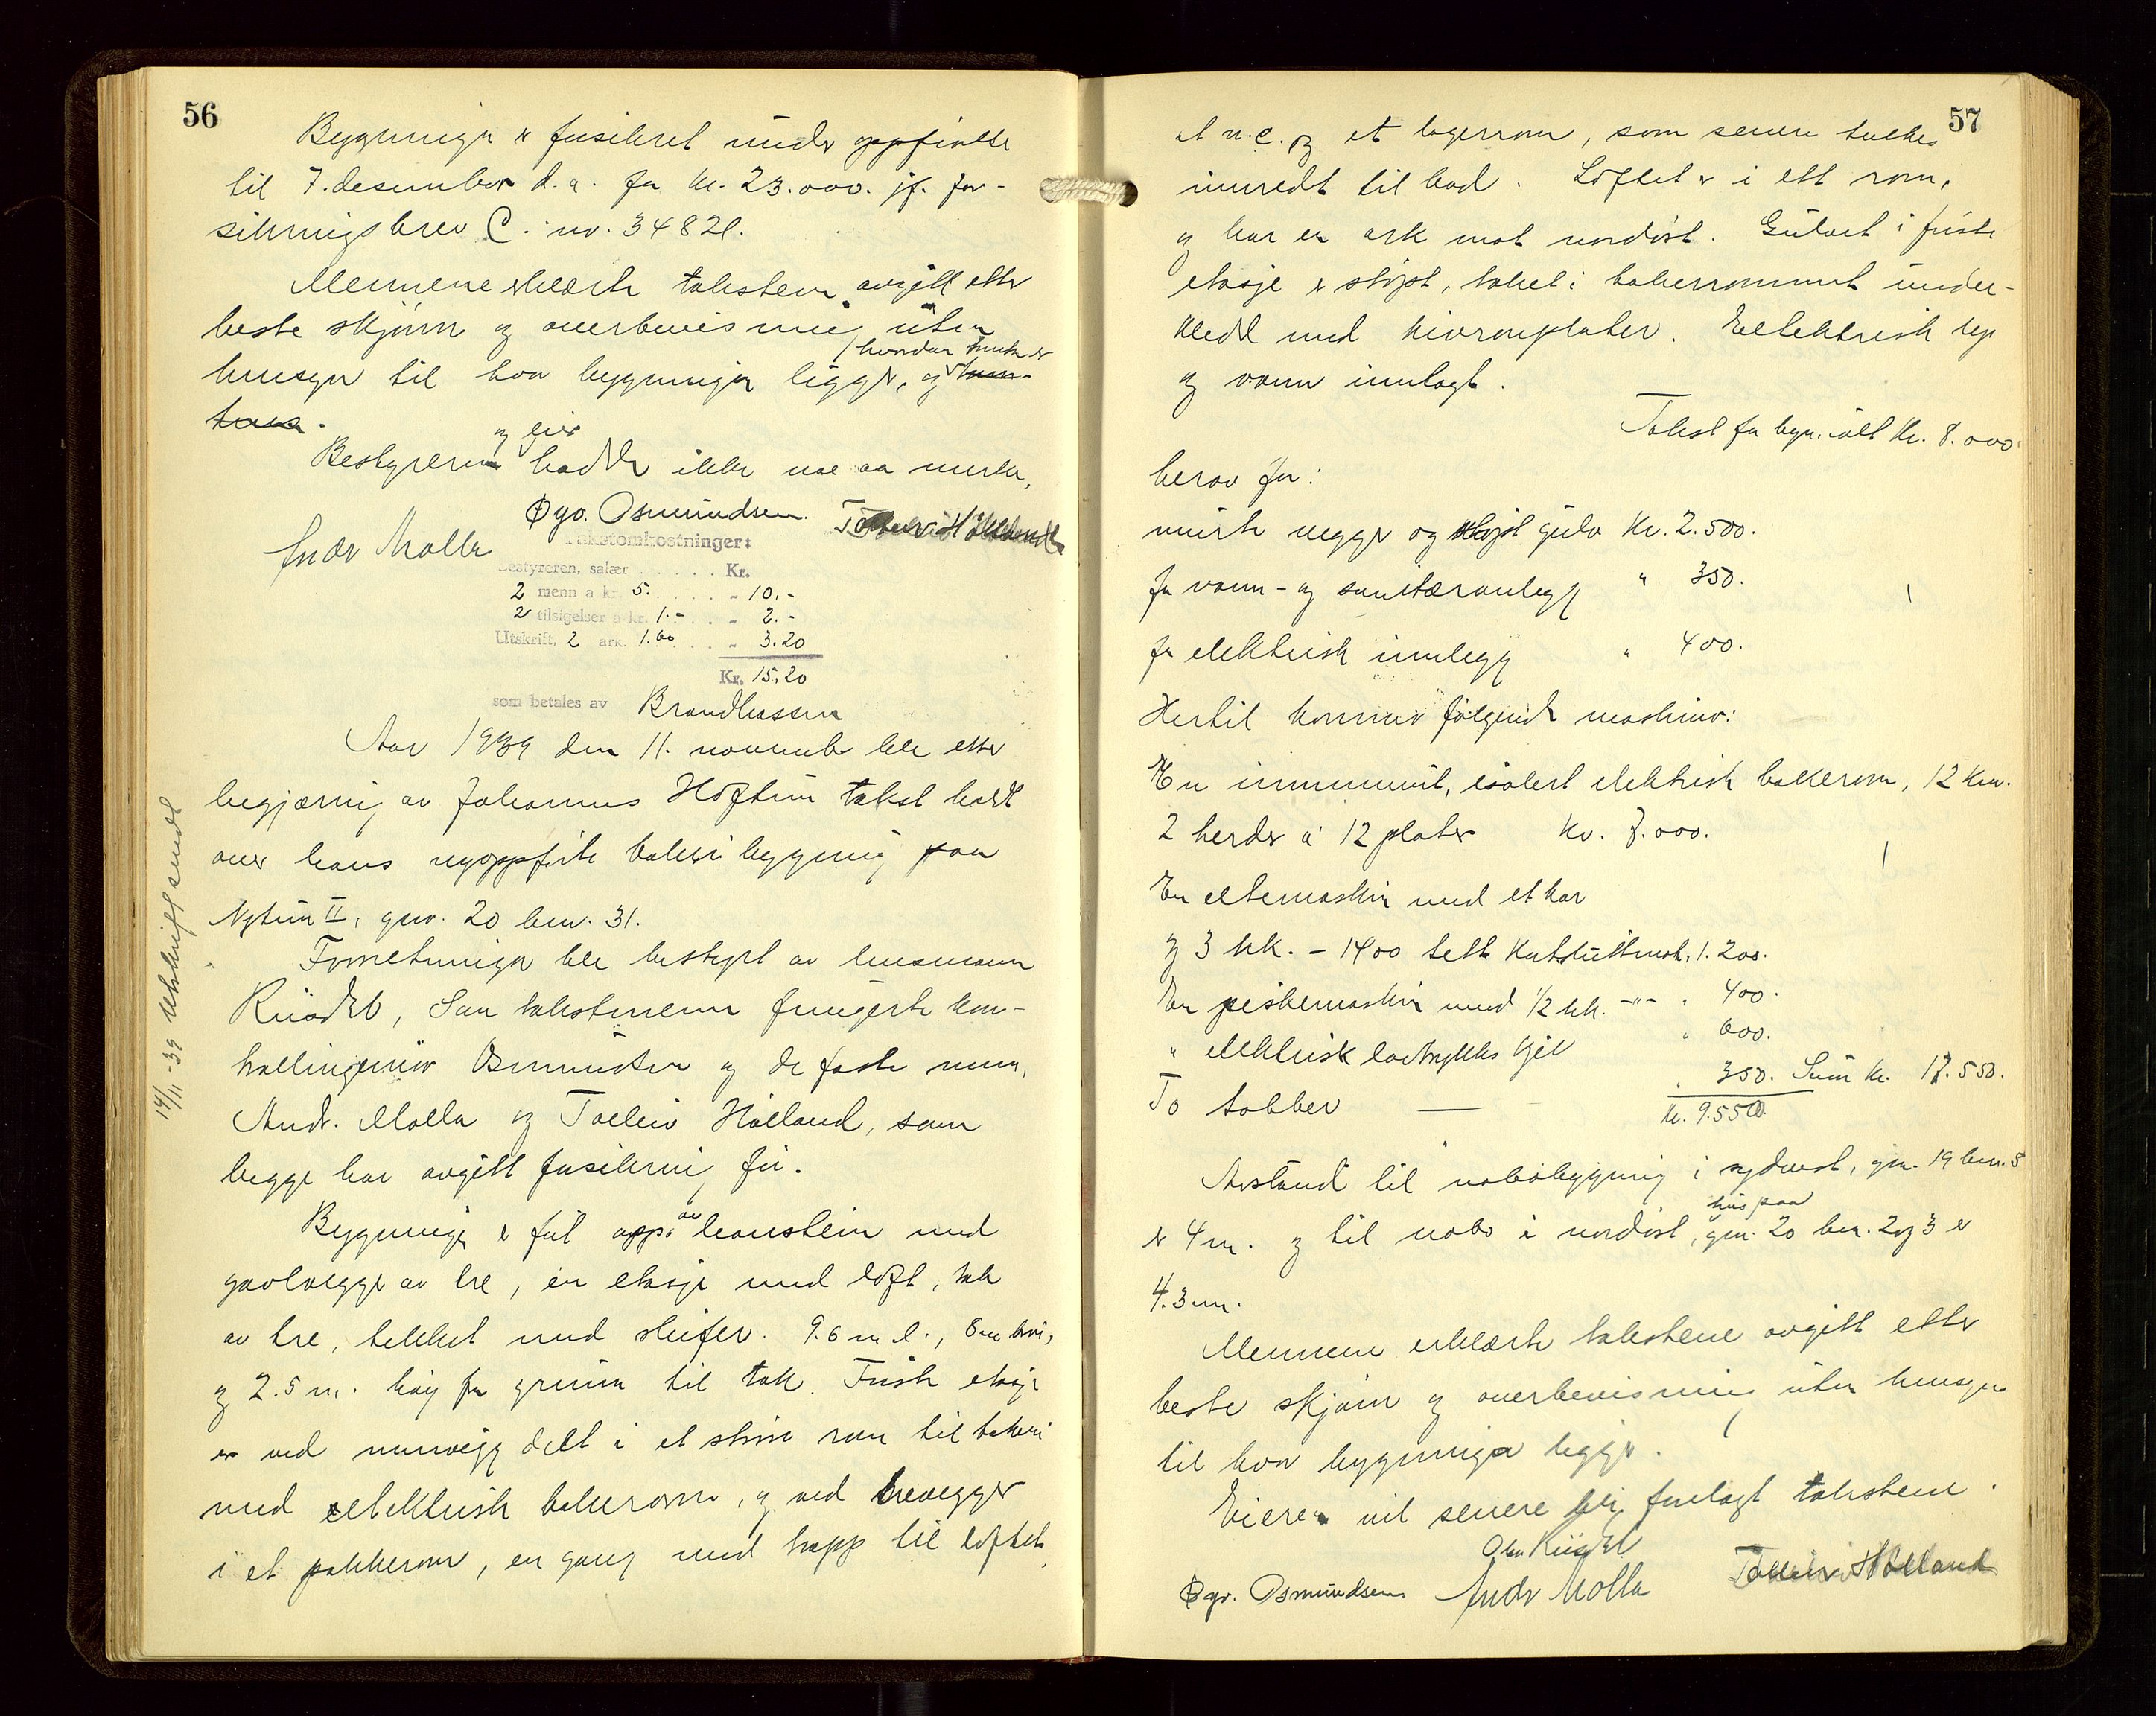 56
Bygningen er forsikret under oppførelse
til 7. desember d. a. for kr. 23.000. jf. for-
sikringsbrev C. nr. 34821.
Mennene erklærte taksten avgitt etter
beste skjønn og overbevisning uten
hvordan bruk er
hensyn til hvor bygningen ligger, og
og eier
Bestyreren hadde ikke noe aa merke.
Øyv. Osmundsen. Tolleiv Hølland
Andr Molla
Takstomkostninger:
Bestyreren, salær . . . . . . Kr.
2 menn a kr. 5. . . . . . „ 10.-
2 tilsigelser a kr. 1.- . . . „ 2.-
Utskrift, 2 ark. 1.60 . . . „ 3.20
Kr. 15.20
som betales av Brandkassen
Aar 1939 den 11. november ble etter
begjæring av Johannes Høftun takst holdt
over hans nyoppførte bakeribygning paa
Nytun II, gnr. 20 bnr. 31.
Forretningen ble bestyrt av lensmann
Riisdal, Som takstmenn fungerte kon-
trollingeniør Osmundsen og de faste menn,
Andr. Molla og Tolleiv Hølland, som
begge har avgitt forsikring før.
Bygningen er ført opp av leonstein med
gavlvegger av tre, en etasje med loft, tak
av tre, tekket med skifer. 9.6 m l., 8 m brei,
og 2.5 m. høy fra grunn til tak. Første etasje
er ved murvegg delt i et større rom til bakeri
med elektrisk bakerovn, og ved trevegger
i et pakkerom, en gang med trapp til loftet
14/11-39 Utskrift sendt
57
et w.c. og et lagerrom, som senere tenkes
innredt til bad. Loftet er i ett rom,
og har en ark mot nordøst. Gulvet i første
etasje er støpt, taket i bakerrommet under-
kledd med hivronplater. Ellektrisk lys
og vann innlagt.
Takst for bygn. i alt kr. 8.000.
herav for:
murte vegger og støpt gulv Kr. 2.500.
for vann- og sanitæranlegg „ 350.
for elektrisk innlegg „ 400.
Hertil kommer følgende maskiner:
En innemurt, isolert elektrisk bakerovn, 12 kw.
2 herder à 12 plater Kr. 7.000.
En eltemaskin med et kar
og 3 hk. - 1400 1.200.
En peiskemaskin med 1/2 hk. -"- „ 400.
„ elektrisk lavtrykks kjel „ 600.
To tobber — „ 350. Sum kr. 17.550.
kr. 9.550.
Avstand til nabobygning i sydvest, gnr. 19 bnr. 5
hus paa
er 4 m. og til nabo i nordøst, gnr. 20 bnr. 2 og 3 er
4.3 m.
Mennene erklærte takstene avgitt etter
beste skjønn og overbevisning uten hensyn
til hvor bygningen ligger.
Eieren vil senere bli forelagt takstene.
Olav Riisdal
Øyv. Osmundsen Andr Molla Tolleiv Hølland